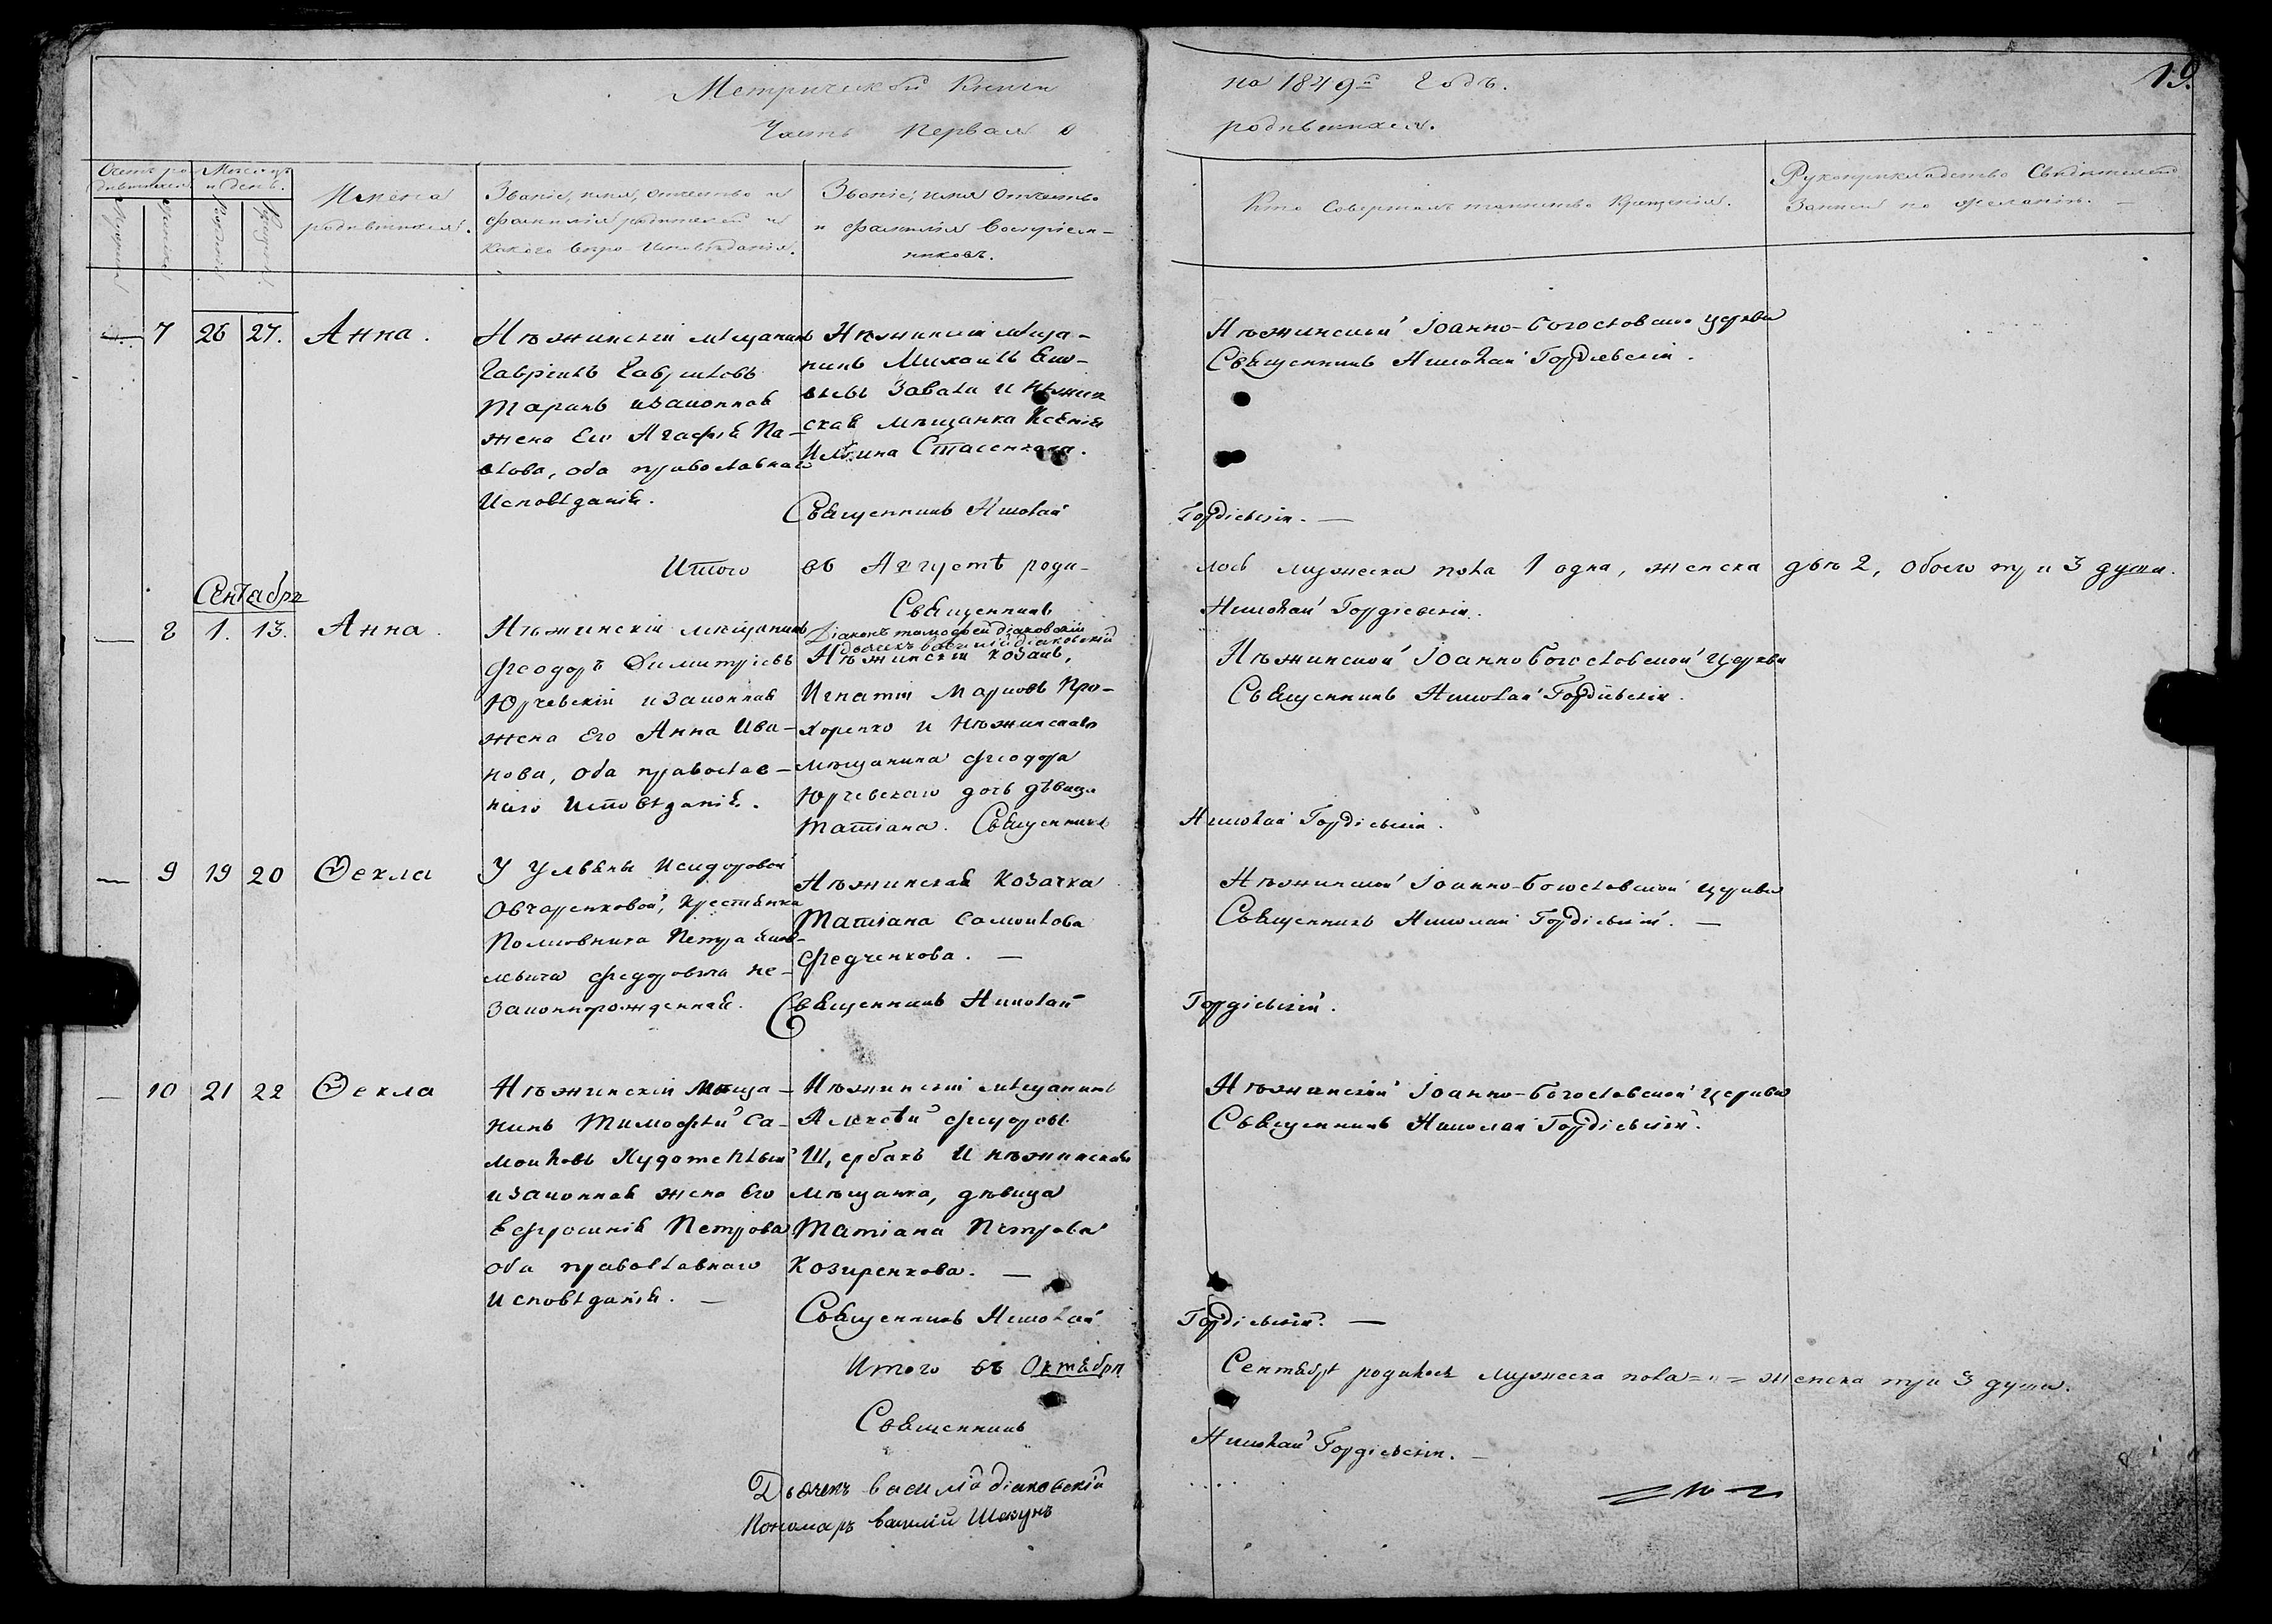 Метрической Книги на 1849й Годъ. 19.
Часть Первая о родившихся.
Счетъ родившихся.
Мѣсяцъ и день.
Имена родившихся.
Званіе, имя, отчество и фамилія родителей и какого вѣро-исповѣданія.
Званіе, имя отчество и фамилія воспріемниковъ.
Кто совершалъ таинство крещенія.
Рукоприкладство свидѣтелей записи по желанію.
7 26 27. Анна.
Нѣжинскій мѣщанинъ
Гавріилъ Гавриловъ
Таранъ и законная
жена его Агафія Па-
влова, оба православнаго
Исповѣданія.
Нѣжинскій мѣща-
нинъ Михаилъ
Завала и Нѣжин
ская мѣщанка Ксенія
Ильина Стасенкова.
Нѣжинской Іоанно-Богословской церкви
Священникъ Николай Гордіевскій.
Священникъ Николай Гордіевскій. —
Итого въ Августѣ роди-
лось мужеска пола 1 одна, женска двѣ 2, обоего три 3 души.
Священникъ Николай Гордіевскій.
Діаконъ тимофей діаковскій
дьячекъ василій діаковскій
Сентябрь
8 1. 13. Анна.
Нѣжинскій мѣщанинъ
Феодоръ Димитріевъ
Юрчевскій и законная
жена его Анна Ива-
нова, оба православ-
наго исповѣданія.
Нѣжинскій козакъ,
Игнатій Марковъ Про-
хоренко и Нѣжинскаго
мѣщанина Феодора
Юрчевскаго дочь дѣвица
Татіана. Священникъ
Нѣжинской Іоанно Богословской церкви
Священникъ Николай Гордіевскій.
Николай Гордіевскій.
9 19 20 Ѳекла
У Ульяны Исидоровой
Овчаренковой, крестьянки
Полковника Петра
Федоровича не-
законнорожденная.
Нѣжинская козачка
Татіана Самойлова
Федченкова. —
Священникъ Николай
Нѣжинской Іоанно-Богословской церкви
Священникъ Николай Гордіевскій. —
Гордіевскій.
10 21 22 Ѳекла
Нѣжинскій мѣща-
нинъ Тимофей Са-
мойловъ Худотеплый
и законная жена его
Ефросинія Петрова
оба православнаго
Исповѣданія. —
Нѣжинскій мѣщанинъ
Алексѣй Федоровъ
Щербакъ и нѣжинская
мѣщанка, дѣвица
Татіана Петрова
Козиренкова. —
Нѣжинской Іоанно-Богословской церкви
Священникъ Николай Гордіевскій.
Священникъ Николай Гордіевскій. —
Итого въ Октябрѣ Сентябрѣ родилось мужеска пола = „ = женска три 3 души.
Священникъ Николай Гордіевскій. —
Дьячекъ василій діаковскій
Пономарь василій Шекунъ